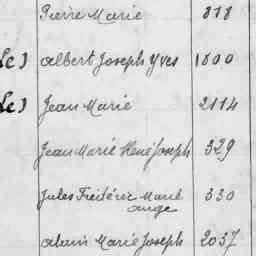 Pierre Marie 818
Le) Albert Joseph Yves 1800
Le) Jean Marie 2114
Jean Marie René Joseph 329
Jules Frédéric Marie 330
ange
Alain Marie Joseph 2037